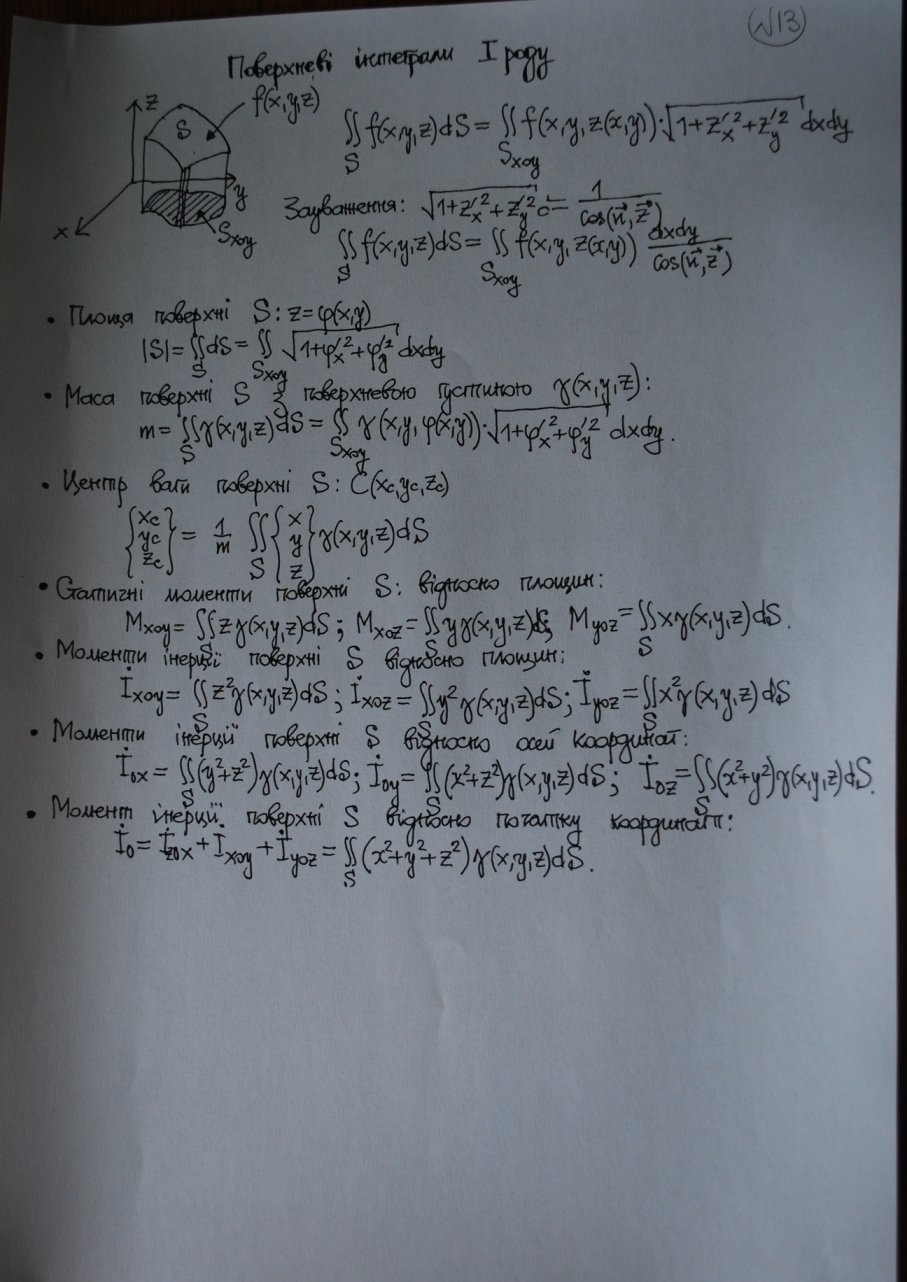 №13
Поверхневі інтеграли I роду
z
f(x,y,z)
S
∬_S f(x,y,z)dS = ∬_{Sxoy} f(x,y,z(x,y))·√(1+z'_x²+z'_y²) dxdy
y
x
Sxoy
Зауваження: √(1+z'_x²+z'_y²) = 1/cos(n⃗,z⃗)
∬_S f(x,y,z)dS = ∬_{Sxoy} f(x,y,z(x,y)) dxdy/cos(n⃗,z⃗)
• Площа поверхні S: z=φ(x,y)
|S|= ∬_S dS = ∬_{Sxoy} √(1+φ'_x²+φ'_y²) dxdy
• Маса поверхні S з поверхневою густиною γ(x,y,z):
m = ∬_S γ(x,y,z)dS = ∬_{Sxoy} γ(x,y,φ(x,y))·√(1+φ'_x²+φ'_y²) dxdy.
• Центр ваги поверхні S: C(xc,yc,zc)
{xc yc zc} = 1/m ∬_S {x y z} γ(x,y,z)dS
• Статичні моменти поверхні S: відносно площин:
Mxoy = ∬_S zγ(x,y,z)dS ; Mxoz = ∬_S yγ(x,y,z)dS; Myoz = ∬_S xγ(x,y,z)dS.
• Моменти інерції поверхні S відносно площин:
İxoy = ∬_S z²γ(x,y,z)dS ; İxoz = ∬_S y²γ(x,y,z)dS; İyoz = ∬_S x²γ(x,y,z)dS
• Моменти інерції поверхні S відносно осей координат:
İox = ∬_S (y²+z²)γ(x,y,z)dS; İoy = ∬_S (x²+z²)γ(x,y,z)dS ; İoz = ∬_S (x²+y²)γ(x,y,z)dS.
• Момент інерції поверхні S відносно початку координат:
İo = İzox + İxoy + İyoz = ∬_S (x²+y²+z²)γ(x,y,z)dS.